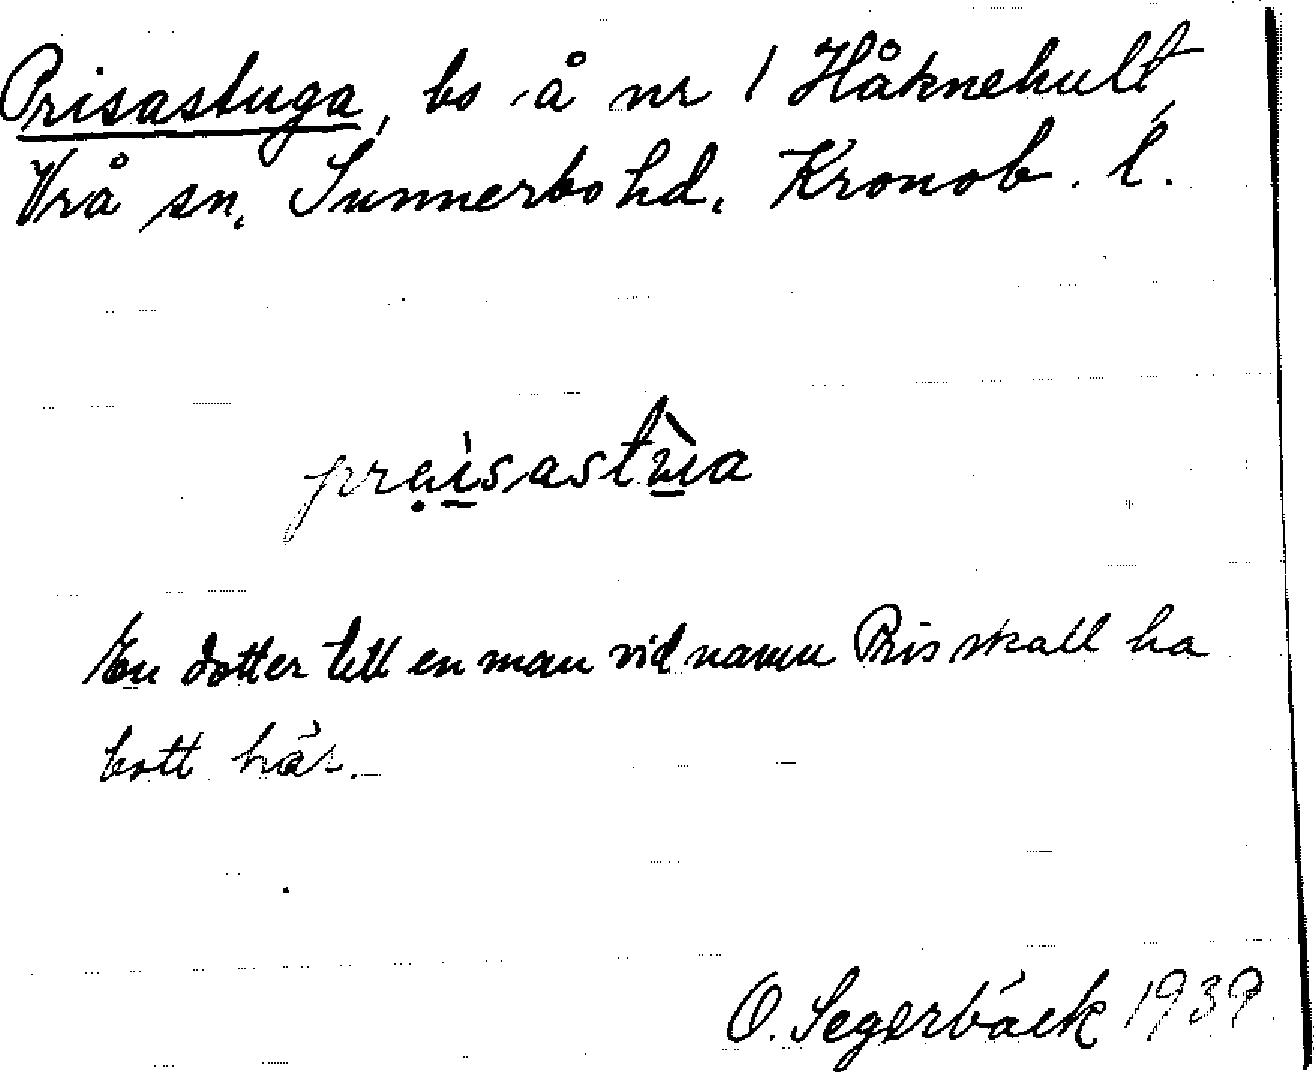 Prisastuga, bo å nr 1 Håknehult,
Vrå sn, Sunnerbo hd, Kronob. l.
prẹi̲sastù̲a
En dotter till en man vid namn Pris skall ha
bott här.
O. Segerbäck 1939